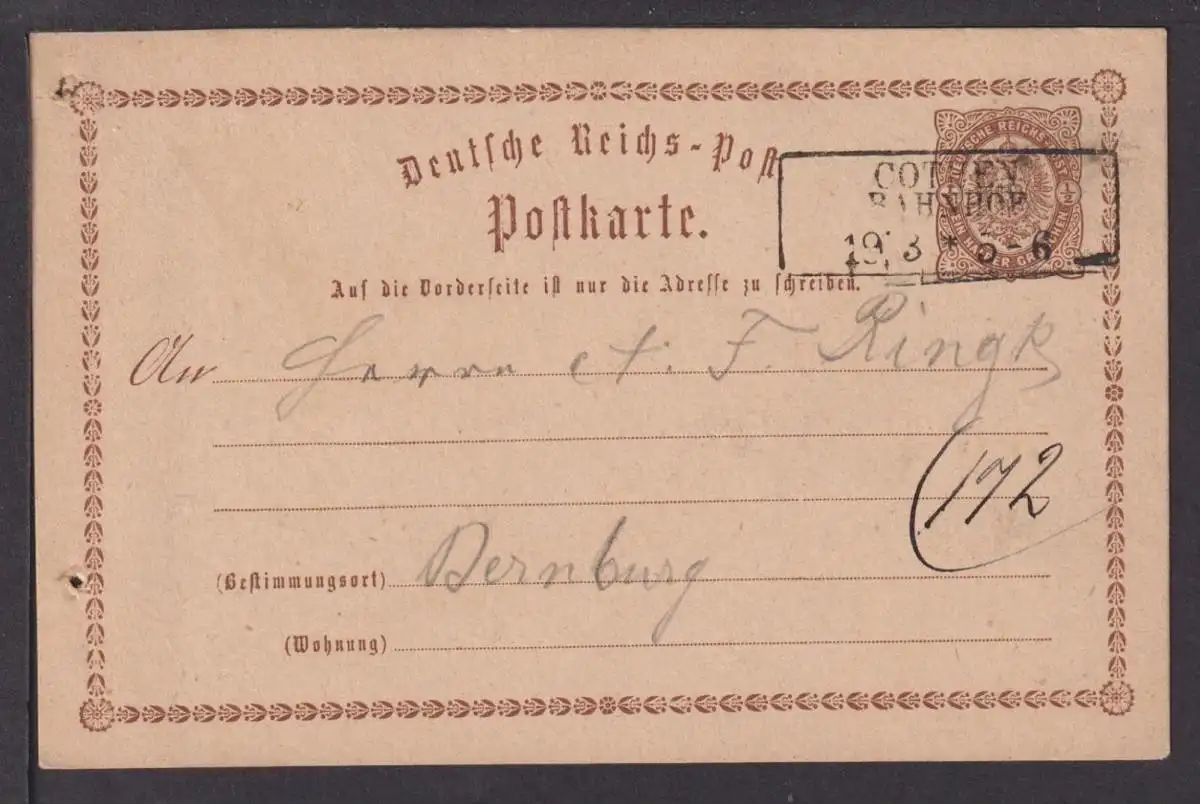 Deutsche Reichs-Post
Postkarte.
DEUTSCHE REICHS-POST
½ ½
EIN HALBER GROSCHEN
BAHNHOF
5-6
Auf die Vorderseite ist nur die Adresse zu schreiben.
An Herrn A. F. Ringk
172
(Bestimmungsort) Bernburg
(Wohnung)